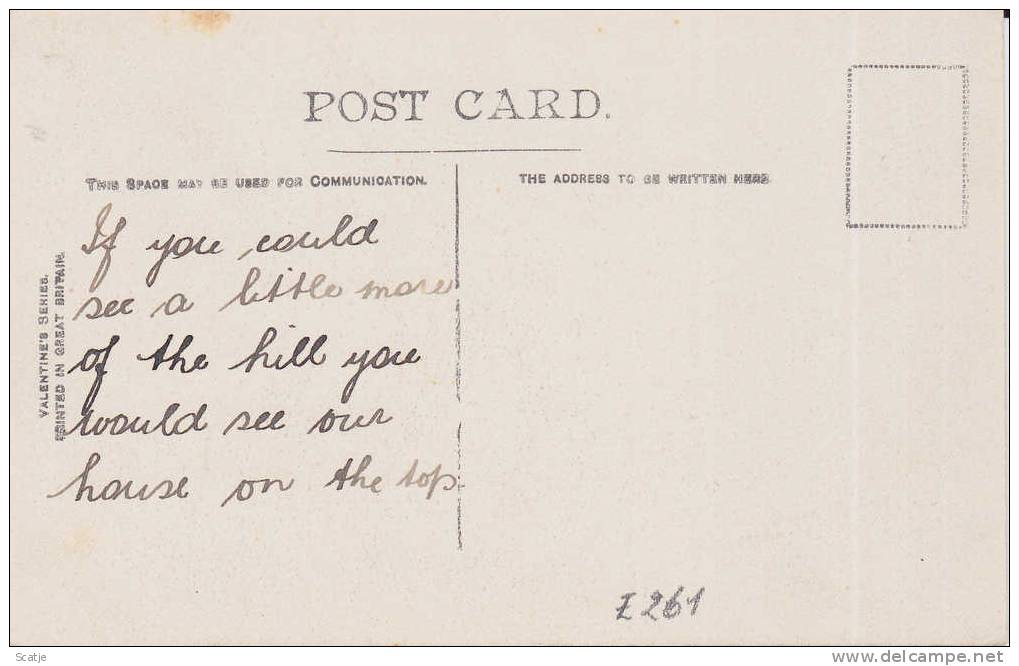 POST CARD.
THIS SPACE MAY BE USED FOR COMMUNICATION.
THE ADDRESS TO BE WRITTEN HERE
If you could
see a little more
of the hill you
would see our
house on the top
VALENTINE'S SERIES.
PRINTED IN GREAT BRITAIN.
Z 261
Scatje
www.delcampe.net